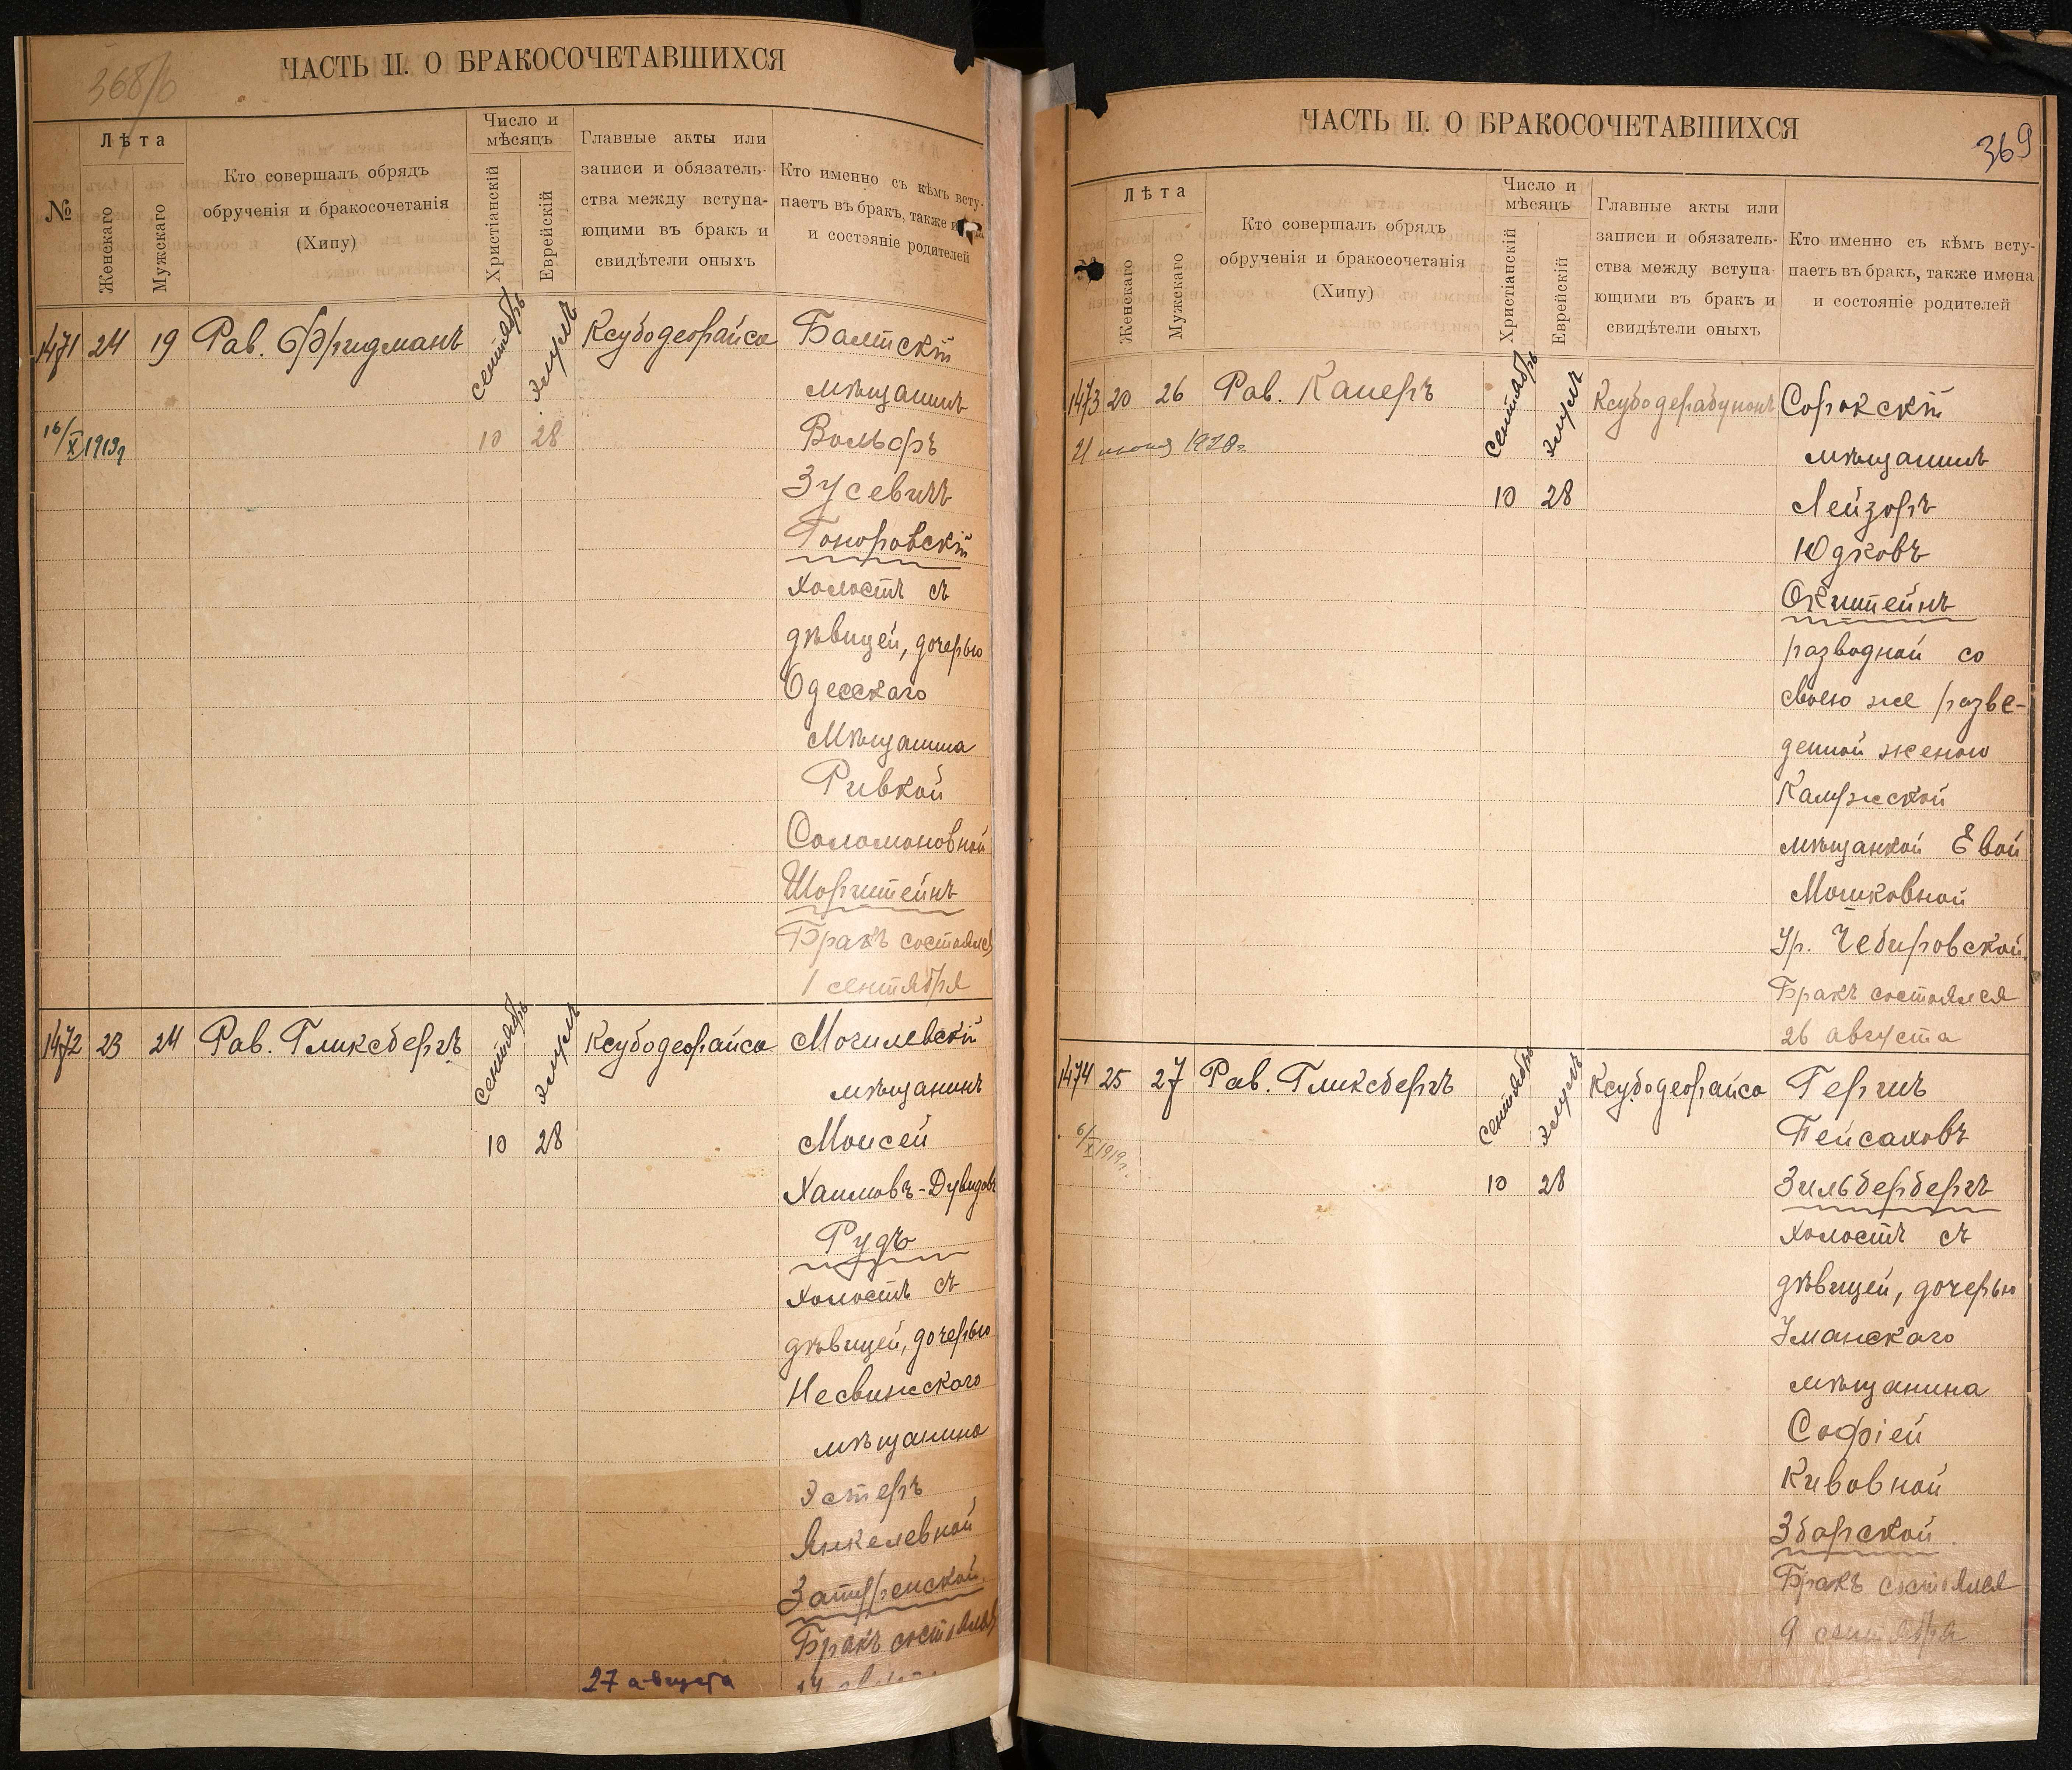 368/б
ЧАСТЬ II. О БРАКОСОЧЕТАВШИХСЯ
№
Лѣта
Женскаго
Мужскаго
Кто совершалъ обрядъ
обрученія и бракосочетанія
(Хипу)
Число и
мѣсяцъ
Христіанскій
Еврейскій
Главные акты или
записи и обязатель-
ства между вступа-
ющими въ бракъ и
свидѣтели оныхъ
Кто именно съ кѣмъ всту-
паетъ въ бракъ, также
и состояніе родителей
1471 24 19 Рав. Фридманъ сентябрь элулъ Ксубодеорайса Балтскій
мѣщанинъ
16/X 1919г 10 28 Вольфъ
Зусевичъ
Гоноровскій
холостъ съ
дѣвицей, дочерью
Одесскаго
Мѣщанина
Ривкой
Соломоновной
Шорштейнъ
Бракъ состоялся
1 сентября
1472 23 24 Рав. Гликсбергъ сентябрь элулъ Ксубодеорайса Могилевскій
мѣщанинъ
10 28 Моисей
Хаимовъ-Дувидовъ
Рудъ
холостъ съ
дѣвицей, дочерью
Несвижскаго
мѣщанина
Эстеръ
Янкелевной
Бракъ состоялся
27 августа
ЧАСТЬ II. О БРАКОСОЧЕТАВШИХСЯ
369
Лѣта
Женскаго
Мужскаго
Кто совершалъ обрядъ
обрученія и бракосочетанія
(Хипу)
Число и
мѣсяцъ
Христіанскій
Еврейскій
Главные акты или
записи и обязатель-
ства между вступа-
ющими въ бракъ и
свидѣтели оныхъ
Кто именно съ кѣмъ всту-
паетъ въ бракъ, также имена
и состояніе родителей
1473 20 26 Рав. Каперъ сентябрь элулъ Ксубодерабунонъ Сорокскій
21 июня 1920г. мѣщанинъ
10 28 Лейзоръ
Юдковъ
Окштейнъ
разводной со
своею же разве-
денной женою
мѣщанкой Евой
Мошковной
Ур. Чебировской.
Бракъ состоялся
26 августа
1474 25 27 Рав. Гликсбергъ сентябрь элулъ Ксубодеорайса Гершъ
6/X 1919г. Пейсаховъ
10 28 Зильбербергъ
холостъ съ
дѣвицей, дочерью
Уманскаго
мѣщанина
Софіей
Кивовной
Зборской.
Бракъ состоялся
9 сентября